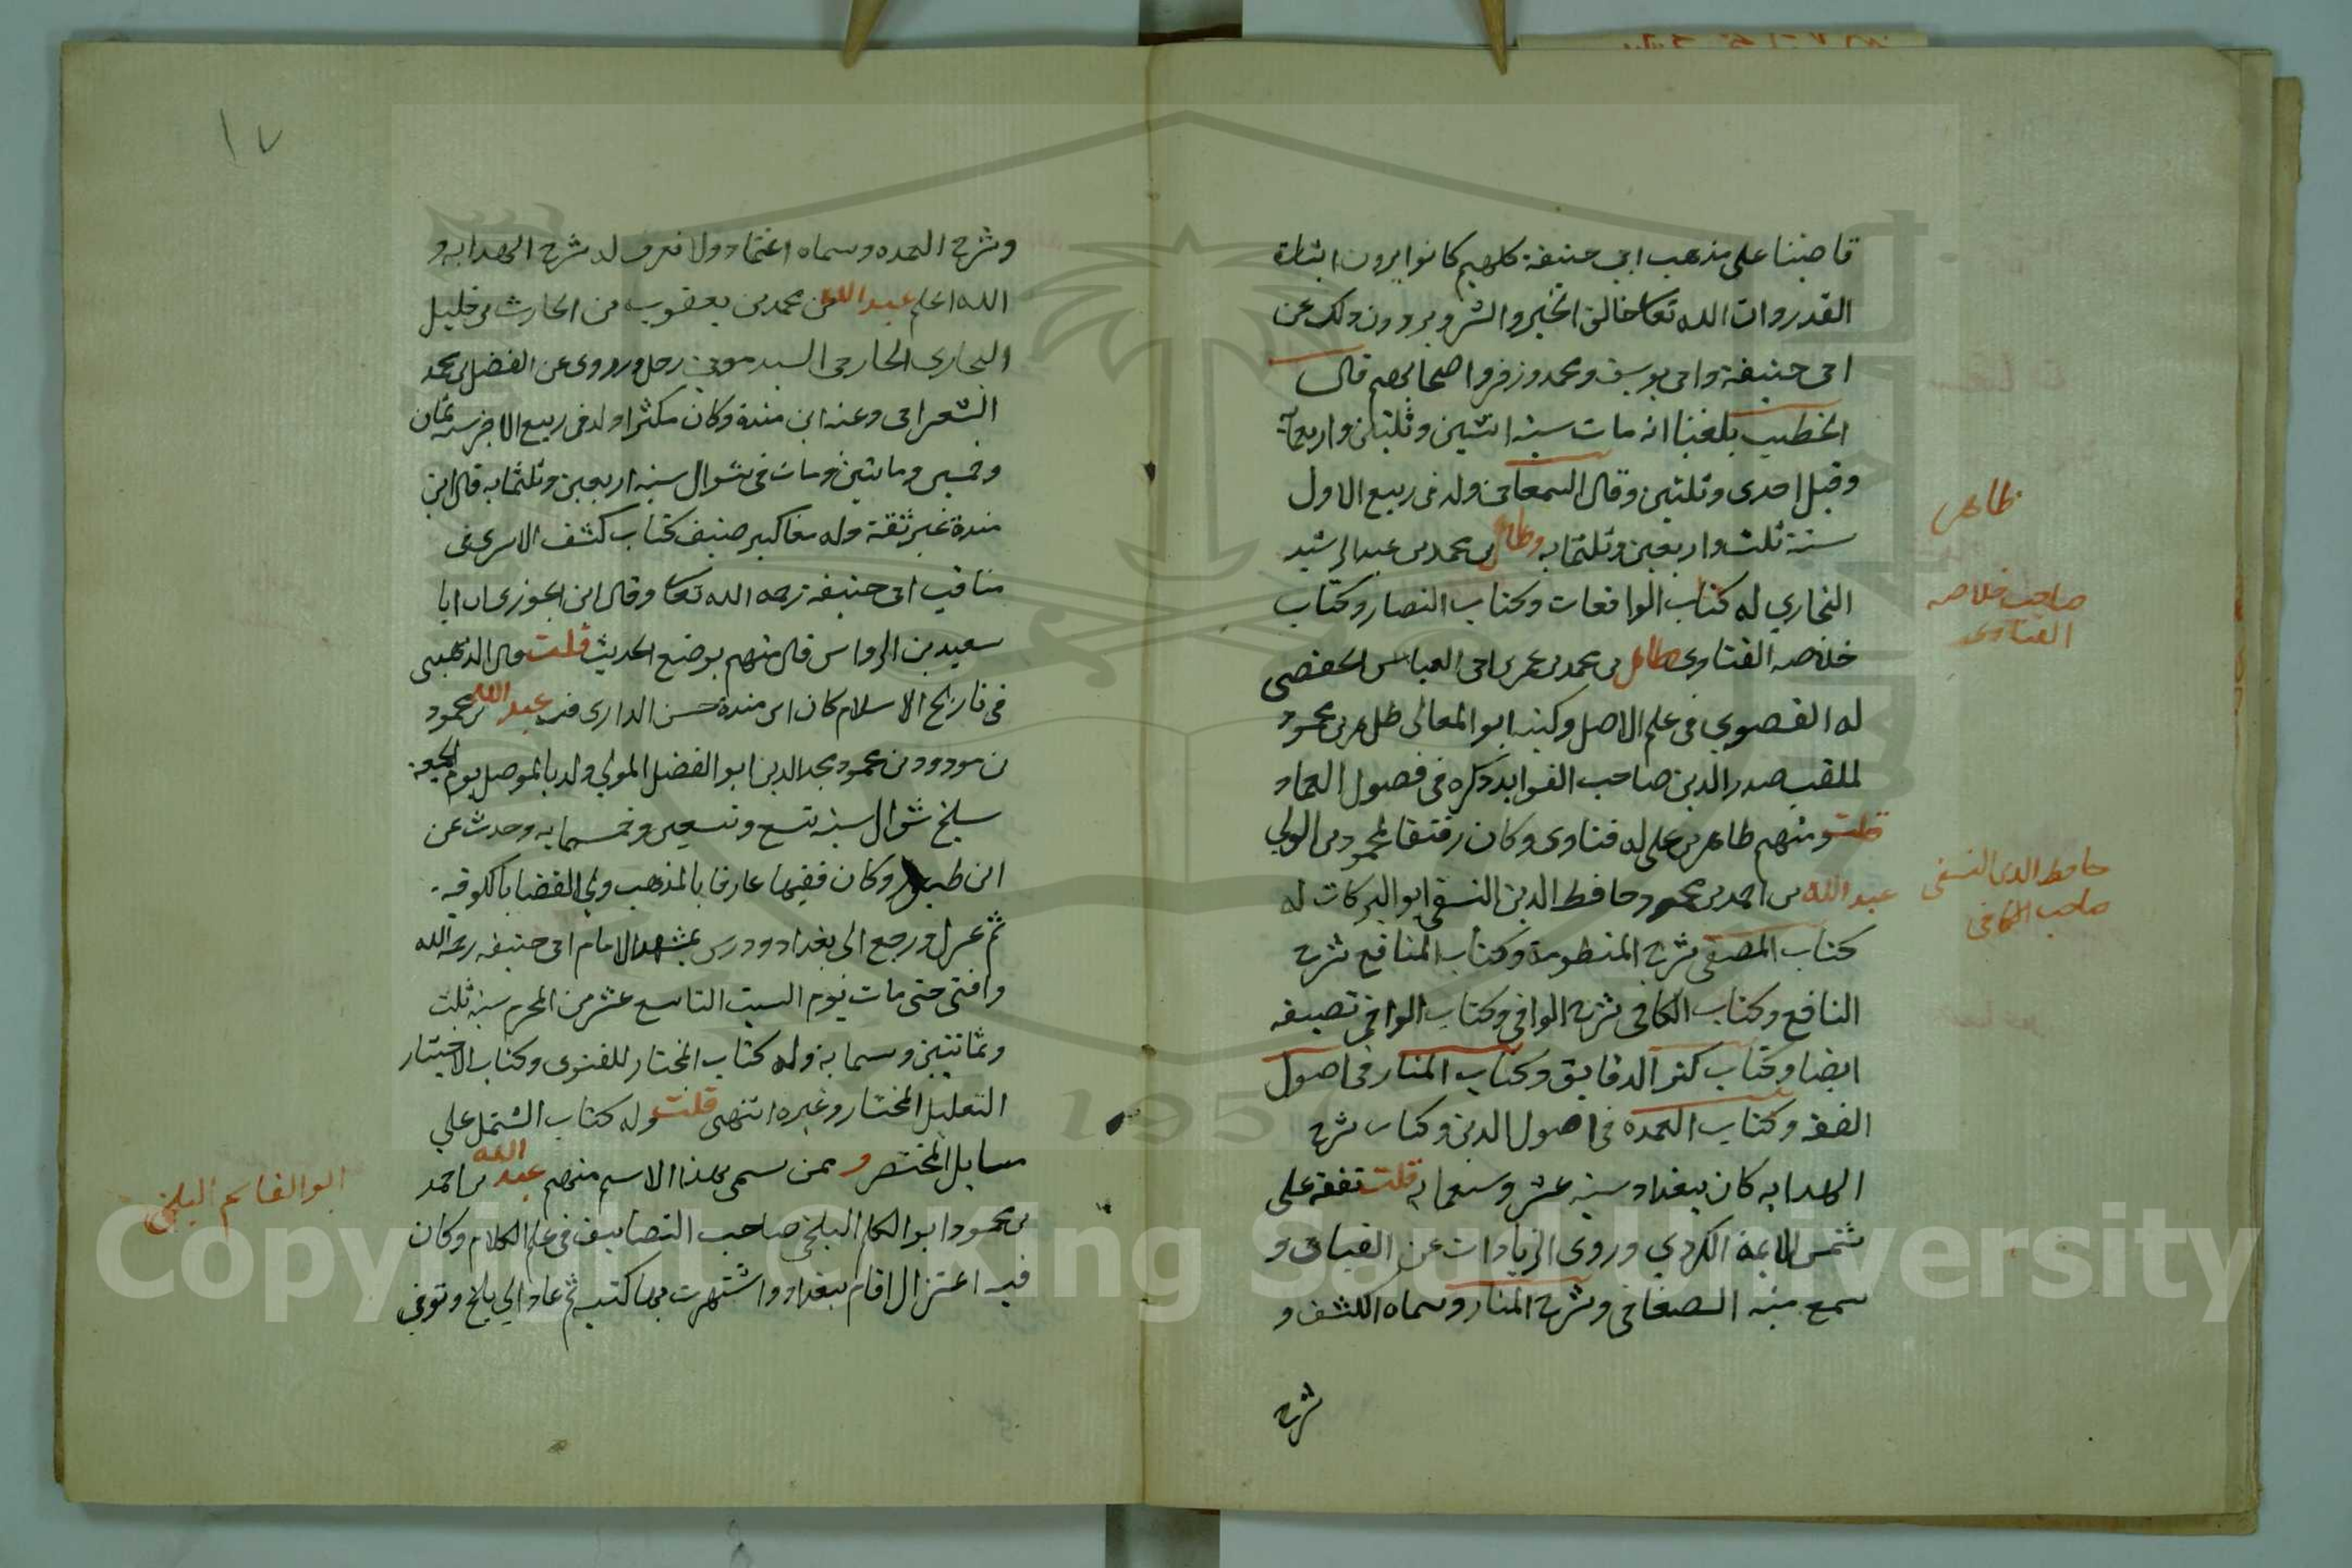 قاضينا على مذهب ابي حنيفة كلهم كانوا يرون اثبات
القدر وان الله تعا خالق الخير والشر ويروون ذلك عن
ابى حنيفة وابى يوسف ومحمد وزفر واصحابهم قال
الخطيب بلغنا انه مات سنه اثنين وثلثين واربعمآية
وقيل احدى وثلثين وقال السمعانى ولد فى ربيع الاول
سنة ثلث واربعين وثلثمايه وطاهر بن محمد بن عبد الرشيد
البخاري له كتاب الواقعات وكتاب النصار وكتاب
خلاصه الفتاوى طاهر بن محمد بن عمر بن ابى العباس الحفصى
له الفصوي فى علم الاصل وكنيه ابو المعالى طاهر بن محمود
لملقب صدر الدين صاحب الفوايد ذكره فى فصول العماد
قلت ومنهم طاهر بن على له فتاوى وكان رفيقا لمحمود بن الولي
عبد الله بن احمد بن محمود حافظ الدين النسفى ابو البركات له
كتاب المصفى شرح المنظومة وكتاب المنافع شرح
النافع وكتاب الكافى شرح الوافي وكتاب الوافى تصيفه
ايضا وكتاب كنز الدقايق وكتاب المنار فى اصول
الفقه وكتاب العمده فى اصول الدين وكتاب شرح
الهدايه كان ببغداد سنه عشر وسبعمايه قلت تفقه على
شمس الايمة الكردي وروى الزيادات عن العتابى و
سمع منه الصغاقى وشرح المنار وسماه الكشف و
شرح
طاهر
صاحب خلاصه
الفتاوى
حافظ الدين النسفى
صاحب الكافى
١٧
وشرح العمده وسماه اعتماد ولا نعرف له شرح الهدايه و
الله اعلم عبد الله بن محمد بن يعقوب بن الحارث بن خليل
البخارى الحارثى السبدمونى رحل وروى عن الفضل بن محمد
الشعرانى وعنه ابن مندة وكان مكثرا ولد فى ربيع الاخر سنه ثمان
وخمسين ومايتين ومات فى شوال سنه اربعين وثلثمايه قال ابن
مندة غير ثقة وله مناكير صنيف كتاب كشف الاسرى فى
مناقب ابى حنيفة رحمه الله تعا وقال ابن الجوزى ان ابا
سعيد بن الرواس قال متهم بوضع الحديث قلت قال الذهبى
فى تاريخ الاسلام كان ابن مندة حسن الدارى فيه عبد الله بن محمود
بن مودود بن محمود مجد الدين ابو الفضل المولي ولد بالموصل يوم الجمعة
سلخ شوال سنه تسع وتسعين وخمسمايه وحدث عن
ابن طبرزد وكان فقيها عارفا بالمذهب ولي القضا بالكوفه
ثم عزل ورجع الى بغداد ودرس بمشهد الامام ابى حنيفه رحمه الله
وافتى حتى مات يوم السبت التاسع عشر من المحرم سنه ثلث
وثمانين وسمايه وله كتاب المختار للفتوى وكتاب الاختيار
التعليل المختار وغيره انتهى قلت وله كتاب الشتمل علي
مسايل المختصر و ممن سمى بهذا الاسم منهم عبد الله بن احمد
بن محمود ابو الكام البلخى صاحب التصانيف فى علم الكلام وكان
فيه اعتزال اقام ببغداد واشتهرت بها كتبه ثم عاد الي بلخ وتوفي
ابو القاسم البلخى